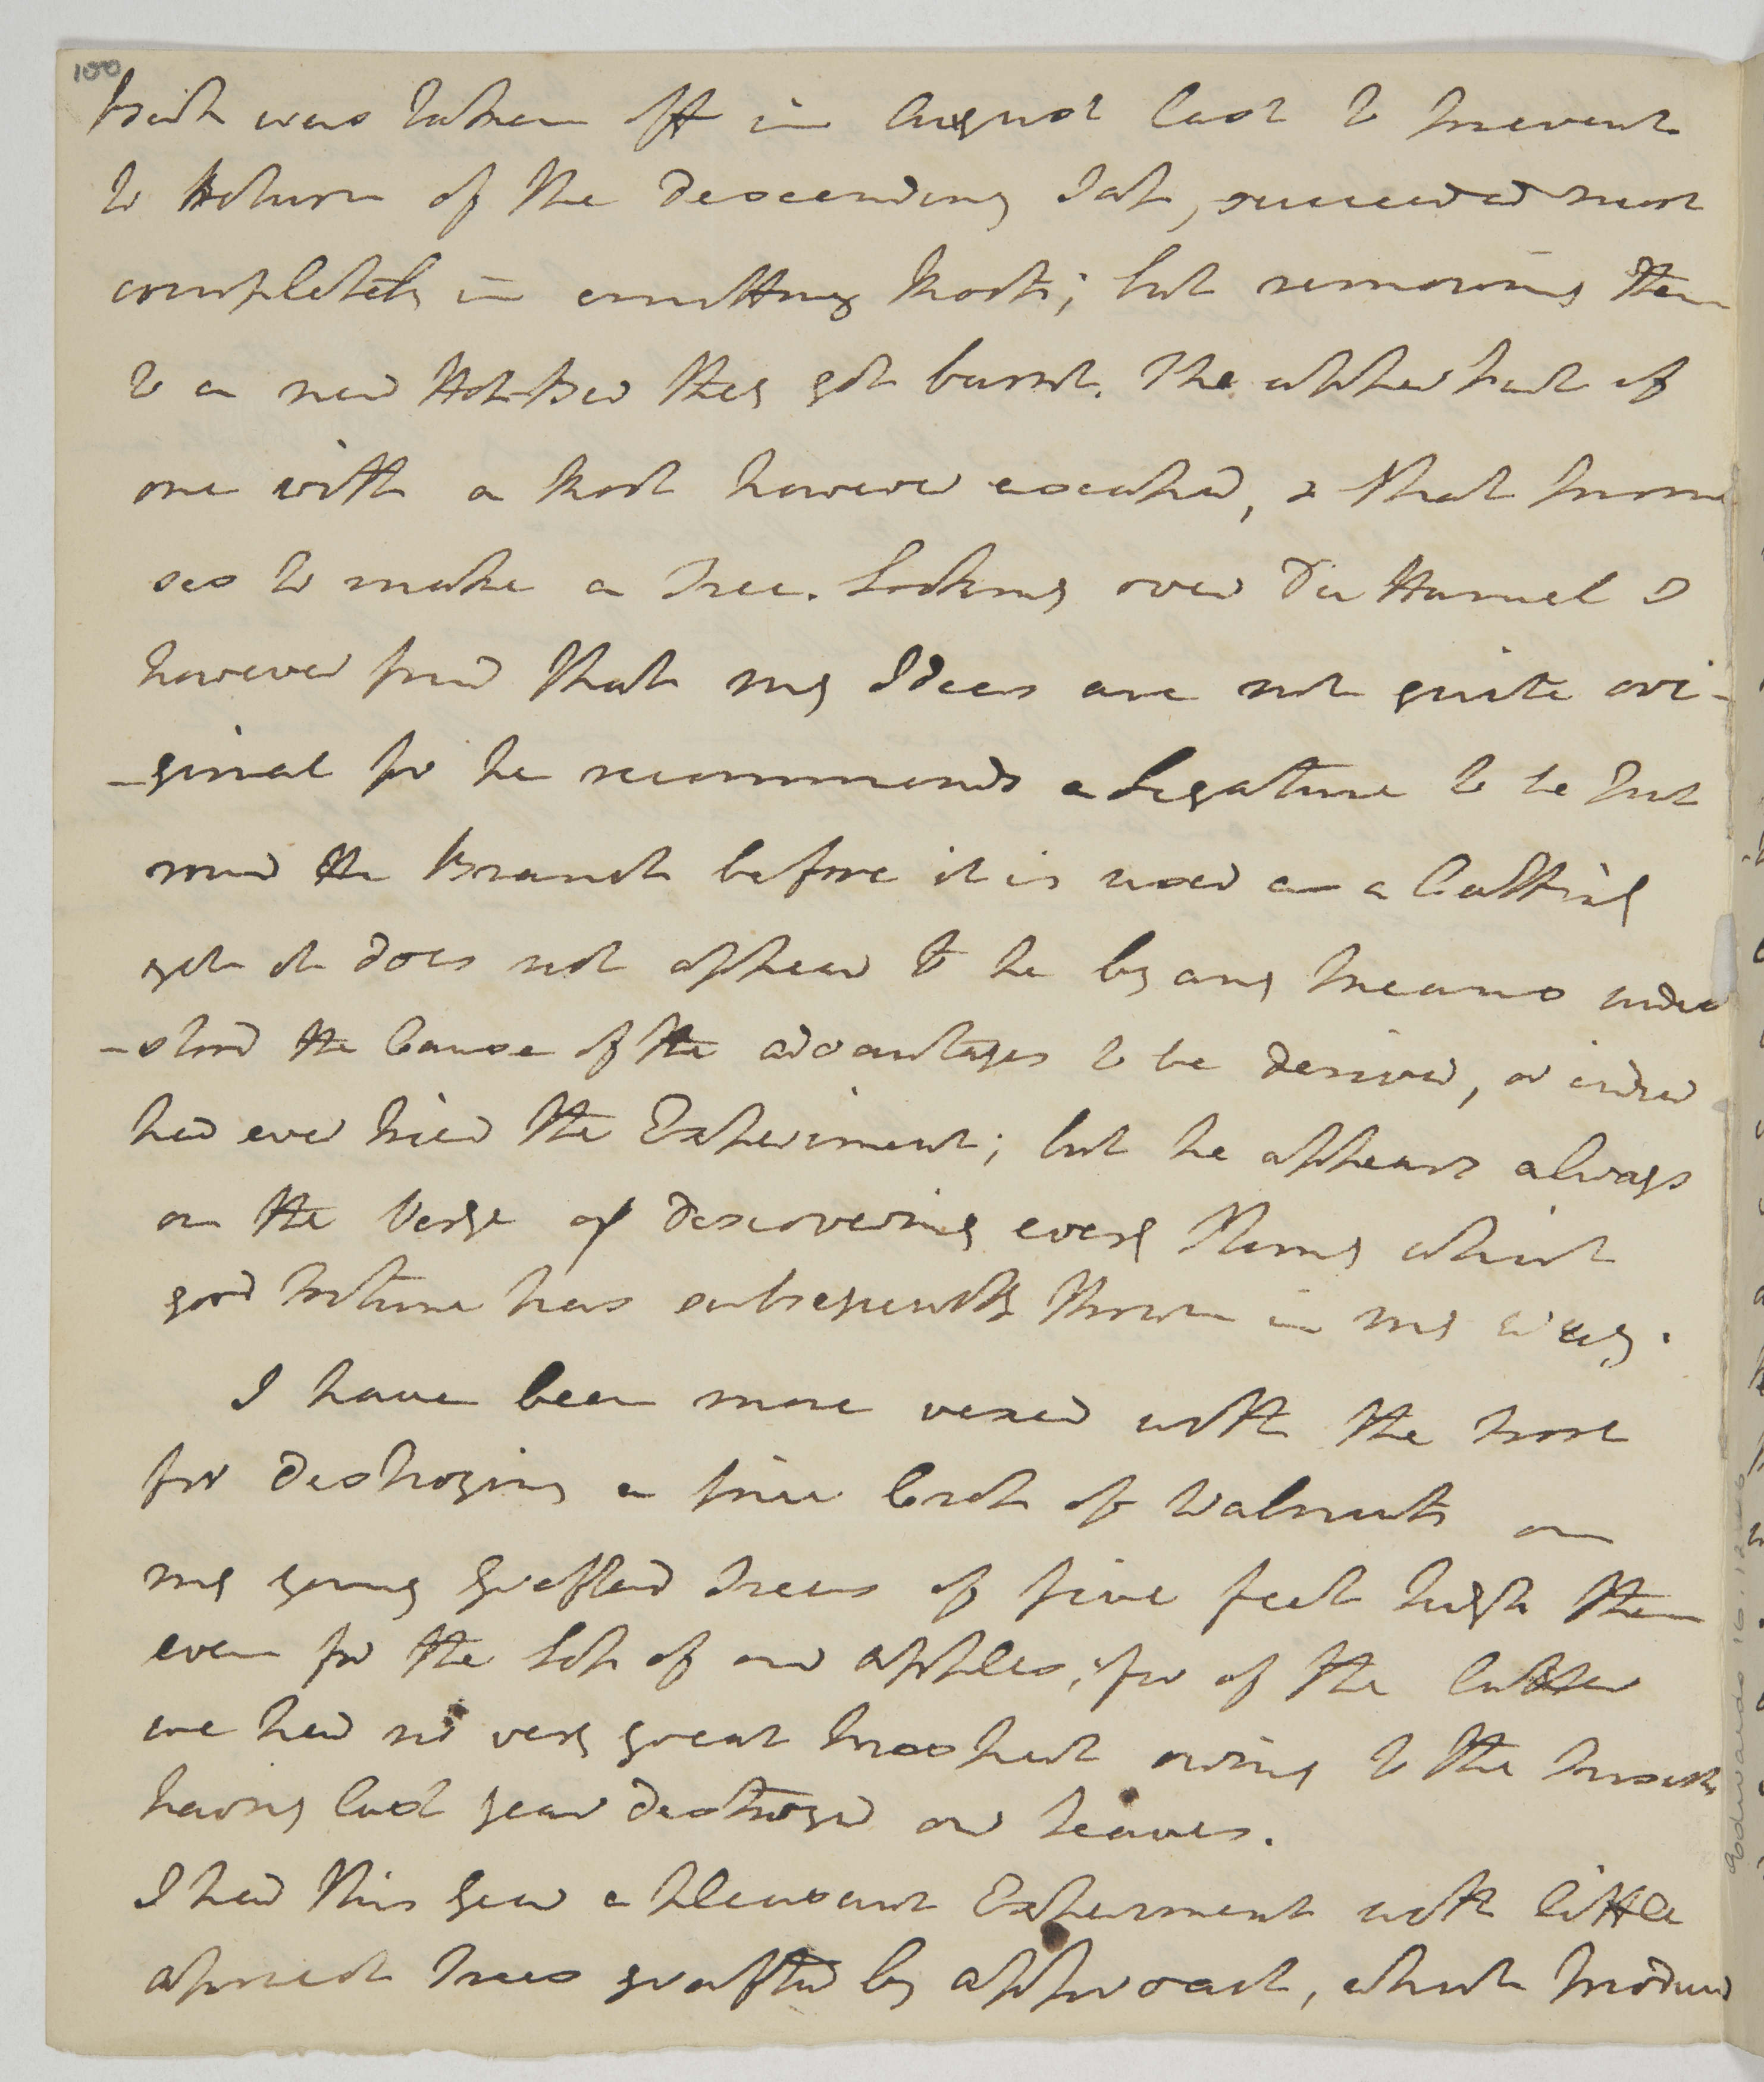 100
Bark was taken off in August last to prevent
to Return of the descending Sap, succeeded most
completely in emitting Roots; but removing them
to a new Hot-Bed they got burnt. The upper part of
one with a Root however escaped, & that promi
ses to make a Tree. Looking over Du Hamel I
however find that my Ideas are not quite ori-
-ginal for he recommends a Ligature to be put
round the Branch before it is used as a Cutting
yet it does not appear to he by any means under
-stood the Cause of the advantages to be derived, or indeed
had ever tried the Experiment; but he appears always
on the Verge of discovering every Thing which
good Fortune has subsequently thrown in my way.
I have been more vexed with the Frost
for destroying a fine Crop of Walnuts on
my young Grafted Trees of five feet high than
even for the Loss of our Apples, for of the latter
we had no very great Prospect owing to the Insects
having last year destroyed our Leaves.
I had this Year a pleasant Experiment with little
Apricot Trees grafted by approach, which produced
Goodwards 16.12.46